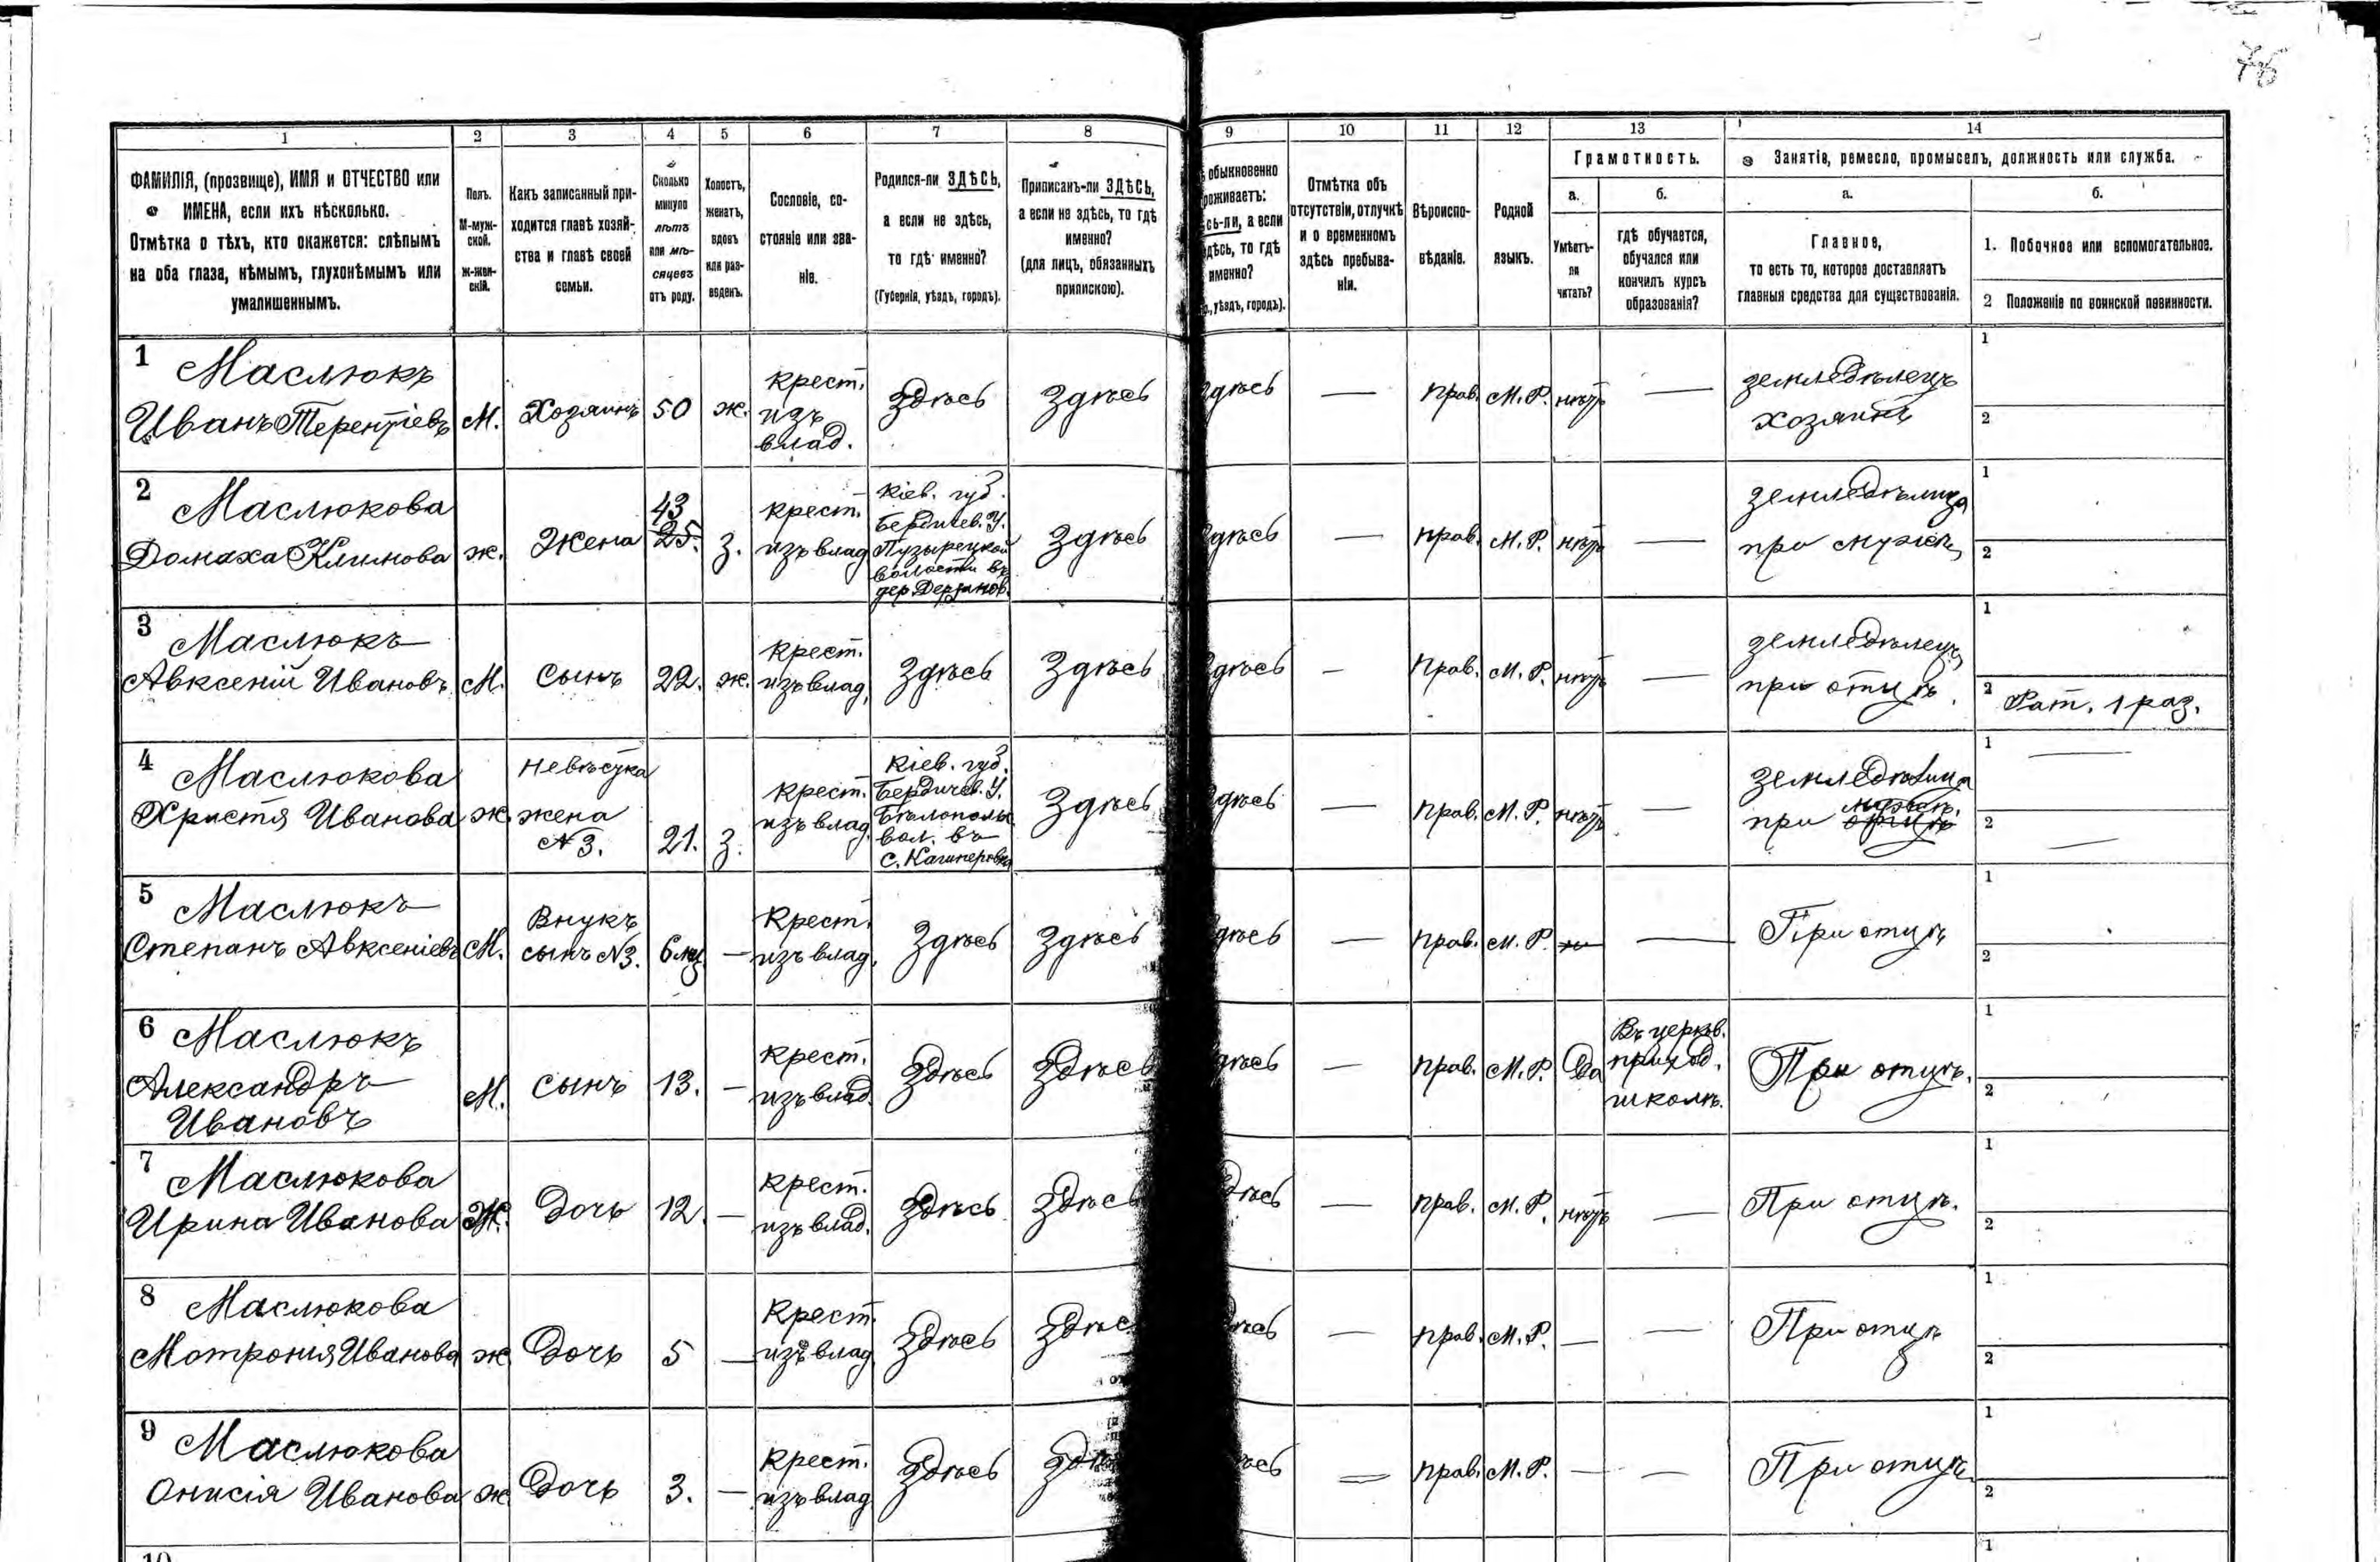 76
1 2 3 4 5 6 7 8 9 10 11 12 13 14
ФАМИЛІЯ, (прозвище), ИМЯ и ОТЧЕСТВО или
ИМЕНА, если ихъ нѣсколько.
Отмѣтка о тѣхъ, кто окажется: слѣпымъ
на оба глаза, нѣмымъ, глухонѣмымъ или
умалишеннымъ.
Полъ.
М-муж-
ской.
ж-жен-
скій.
Какъ записанный при-
ходится главѣ хозяй-
ства и главѣ своей
семьи.
Сколько
минуло
лѣтъ
или мѣ-
сяцевъ
отъ роду.
Холостъ,
женатъ,
вдовъ
или раз-
веденъ.
Сословіе, со-
стояніе или зва-
ніе.
Родился-ли ЗДѢСЬ,
а если не здѣсь,
то гдѣ именно?
(Губернія, уѣздъ, городъ).
Приписанъ-ли ЗДѢСЬ,
а если не здѣсь, то гдѣ
именно?
(для лицъ, обязанныхъ
припискою).
обыкновенно
роживаетъ:
сь-ли, а если
дѣсь, то гдѣ
именно?
уѣздъ, городъ).
Отмѣтка объ
отсутствіи, отлучкѣ
и о временномъ
здѣсь пребыва-
ніи.
Вѣроиспо-
вѣданіе.
Родной
языкъ.
Грамотность.
а.
Умѣетъ-
ли
читать?
б.
гдѣ обучается,
обучался или
кончилъ курсъ
образованія?
Занятіе, ремесло, промыселъ, должность или служба.
а.
Главное,
то есть то, которое доставляетъ
главныя средства для существованія.
б.
1. Побочное или вспомогательное.
2 Положеніе по воинской повинности.
1 Маслюкъ
Иванъ Терентіевъ
М.
Хозяинъ
50
ж.
крест.
изъ
влад.
Здѣсь
Здѣсь
здѣсь
—
прав.
М. Р.
нѣтъ
—
земледѣлецъ
хозяинъ
1
2
2 Маслюкова
Домаха Климова
ж.
Жена
43
25.
з.
крест.
изъ влад
Кіев. губ.
Бердичев. У.
Пузырецкой
волости въ
дер.
Здѣсь
здѣсь
—
прав.
М. Р.
нѣтъ
—
земледѣлица
при мужѣ
1
2
3 Маслюкъ
Авксеній Ивановъ
М.
Сынъ
22.
ж.
крест.
изъ влад.
Здѣсь
Здѣсь
здѣсь
—
прав.
М. Р.
нѣтъ
—
земледѣлецъ
при отцѣ.
1
2 Рат. 1 раз.
4 Маслюкова
Христя Иванова
ж.
невѣстка
жена
№3.
21.
з.
крест.
изъ влад.
Кіев. губ.
Бердичев. У.
Бѣлополь
вол. въ
с. Казимеровка
Здѣсь
здѣсь
—
прав.
М. Р.
нѣтъ
—
земледѣлица
мужѣ.
при отцѣ
1 —
2 —
5 Маслюкъ
Степанъ Авксеніевъ
М.
Внукъ
сынъ №3.
6 мц
—
Крест.
изъ влад.
Здѣсь
Здѣсь
здѣсь
—
прав.
М. Р.
—
При отцѣ
1
2
6 Маслюкъ
Александръ
Ивановъ
М.
Сынъ
13.
—
Крест.
изъ влад.
Здѣсь
Здѣсь
здѣсь
—
прав.
М. Р.
Да
Въ церков.
приход.
школѣ.
При отцѣ.
1
2
7 Маслюкова
Ирина Иванова
Ж.
Дочь
12.
—
крест.
изъ влад.
Здѣсь
Здѣсь
дѣсь
—
прав.
М. Р.
нѣтъ
—
При отцѣ.
1
2
8 Маслюкова
Мотрония Иванова
ж
Дочь
5
—
Крест.
изъ влад
Здѣсь
Здѣс
дѣсь
—
прав.
М. Р.
—
—
При отцѣ
1
2
9 Маслюкова
Онисія Иванова
ж
Дочь
3.
—
Крест.
изъ влад
Здѣсь
Здѣ
ѣсь
—
прав.
М. Р.
—
—
При отцѣ
1
2
10
1